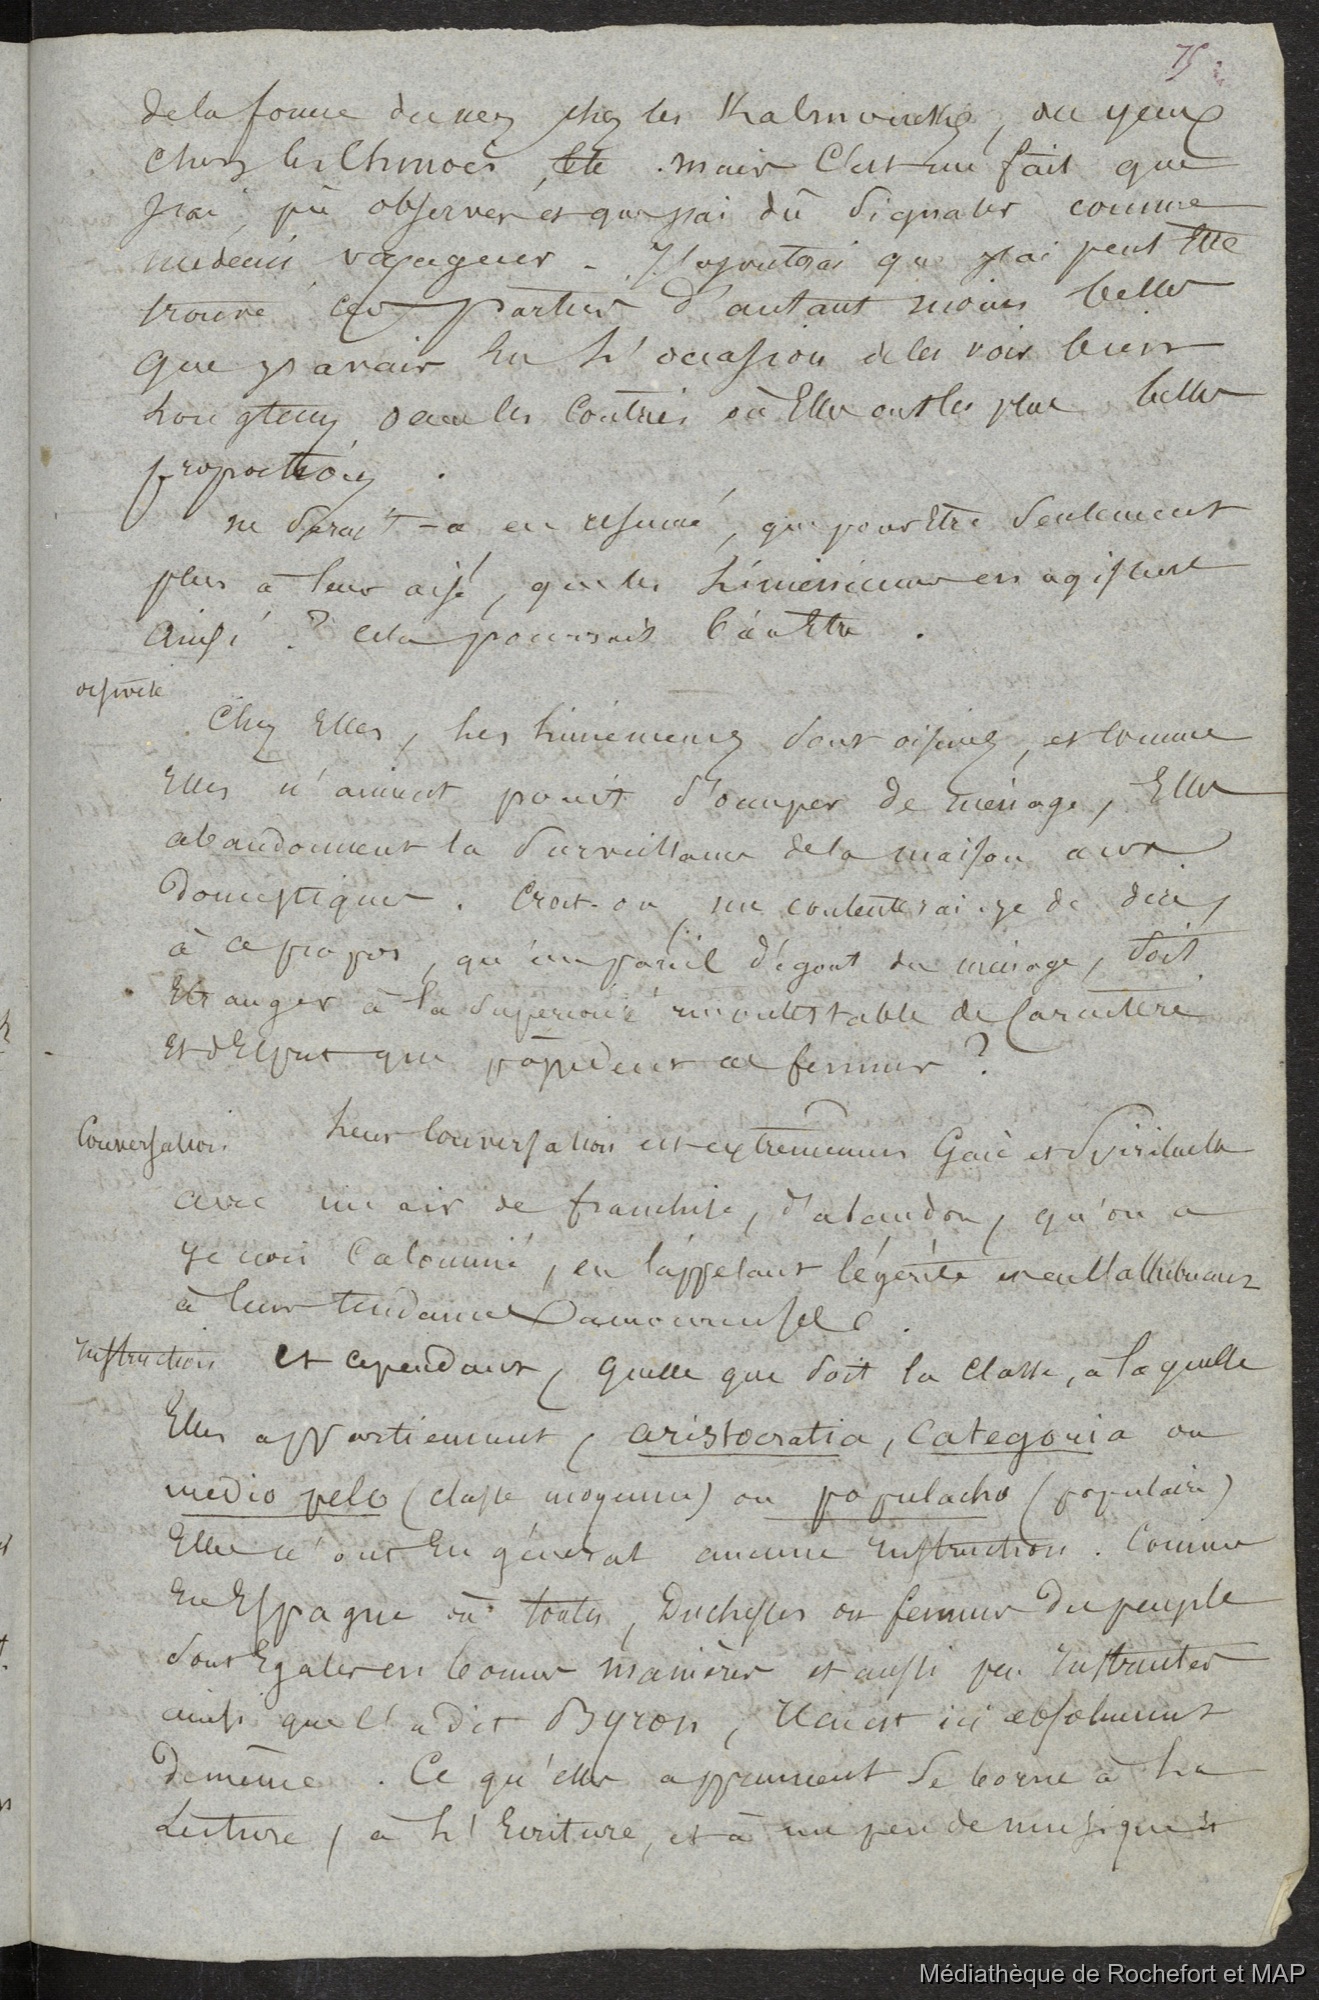 75.
de la forme du nez chez les Kalmoucks, des yeux
chez les Chinois, etc. mais C'est un fait que
j'ai pû observer et que j'ai dû Signaler comme
medecin voyageur - J'ajouterai que j'ai peut Etre
trouvé ces parties d'autant moins belles
que j'avais Eu L'occasion de les voir bien
Longtems dans les Contrées où Elles ont les plus belles
proportions.
ne Serait-ce en resumé, que pour Etre Seulement
plus à leur aise, que les Liméniennes en agissent
ainsi ? cela pourrait bien Etre.
oisiveté
Chez Elles, Les Liméniennes Sont oisives, et comme
Elles n'aiment point S'occuper de ménage, Elles
abandonnent la Surveillance de la maison aux
Domestiques. Croit-on, me contenterai-je de dire,
à ce propos, qu'un pareil dégout du ménage, Soit
Etranger à la Superiorité incontestable de Caractère
Et d'Esprit que possèdent ces femmes ?
Conversation.
Leur Conversation est extrêmement Gaie et Spirituelle
avec un air de franchise, d'abandon, qu'on a
je crois Calomnié, en l'appelant légèreté et en l'attribuant
à leur tendance amoureuse.
Instruction
Et cependant, quelle que Soit la Classe, a laquelle
Elles appartiennent, aristocratia, categoria ou
medio pelo (classe moyenne) ou populacho (populaire)
Elles n'ont En général aucune Instruction. Comme
En Espagne où toutes, Duchesses ou femmes du peuple
Sont Egales en bonnes manières et aussi peu Instruites
ainsi que l'a dit Byron, Il en est ici absolument
de même. Ce qu'elles apprennent Se borne à La
Lecture, à L'Ecriture, et à un peu de musique et
Médiathèque de Rochefort et MAP